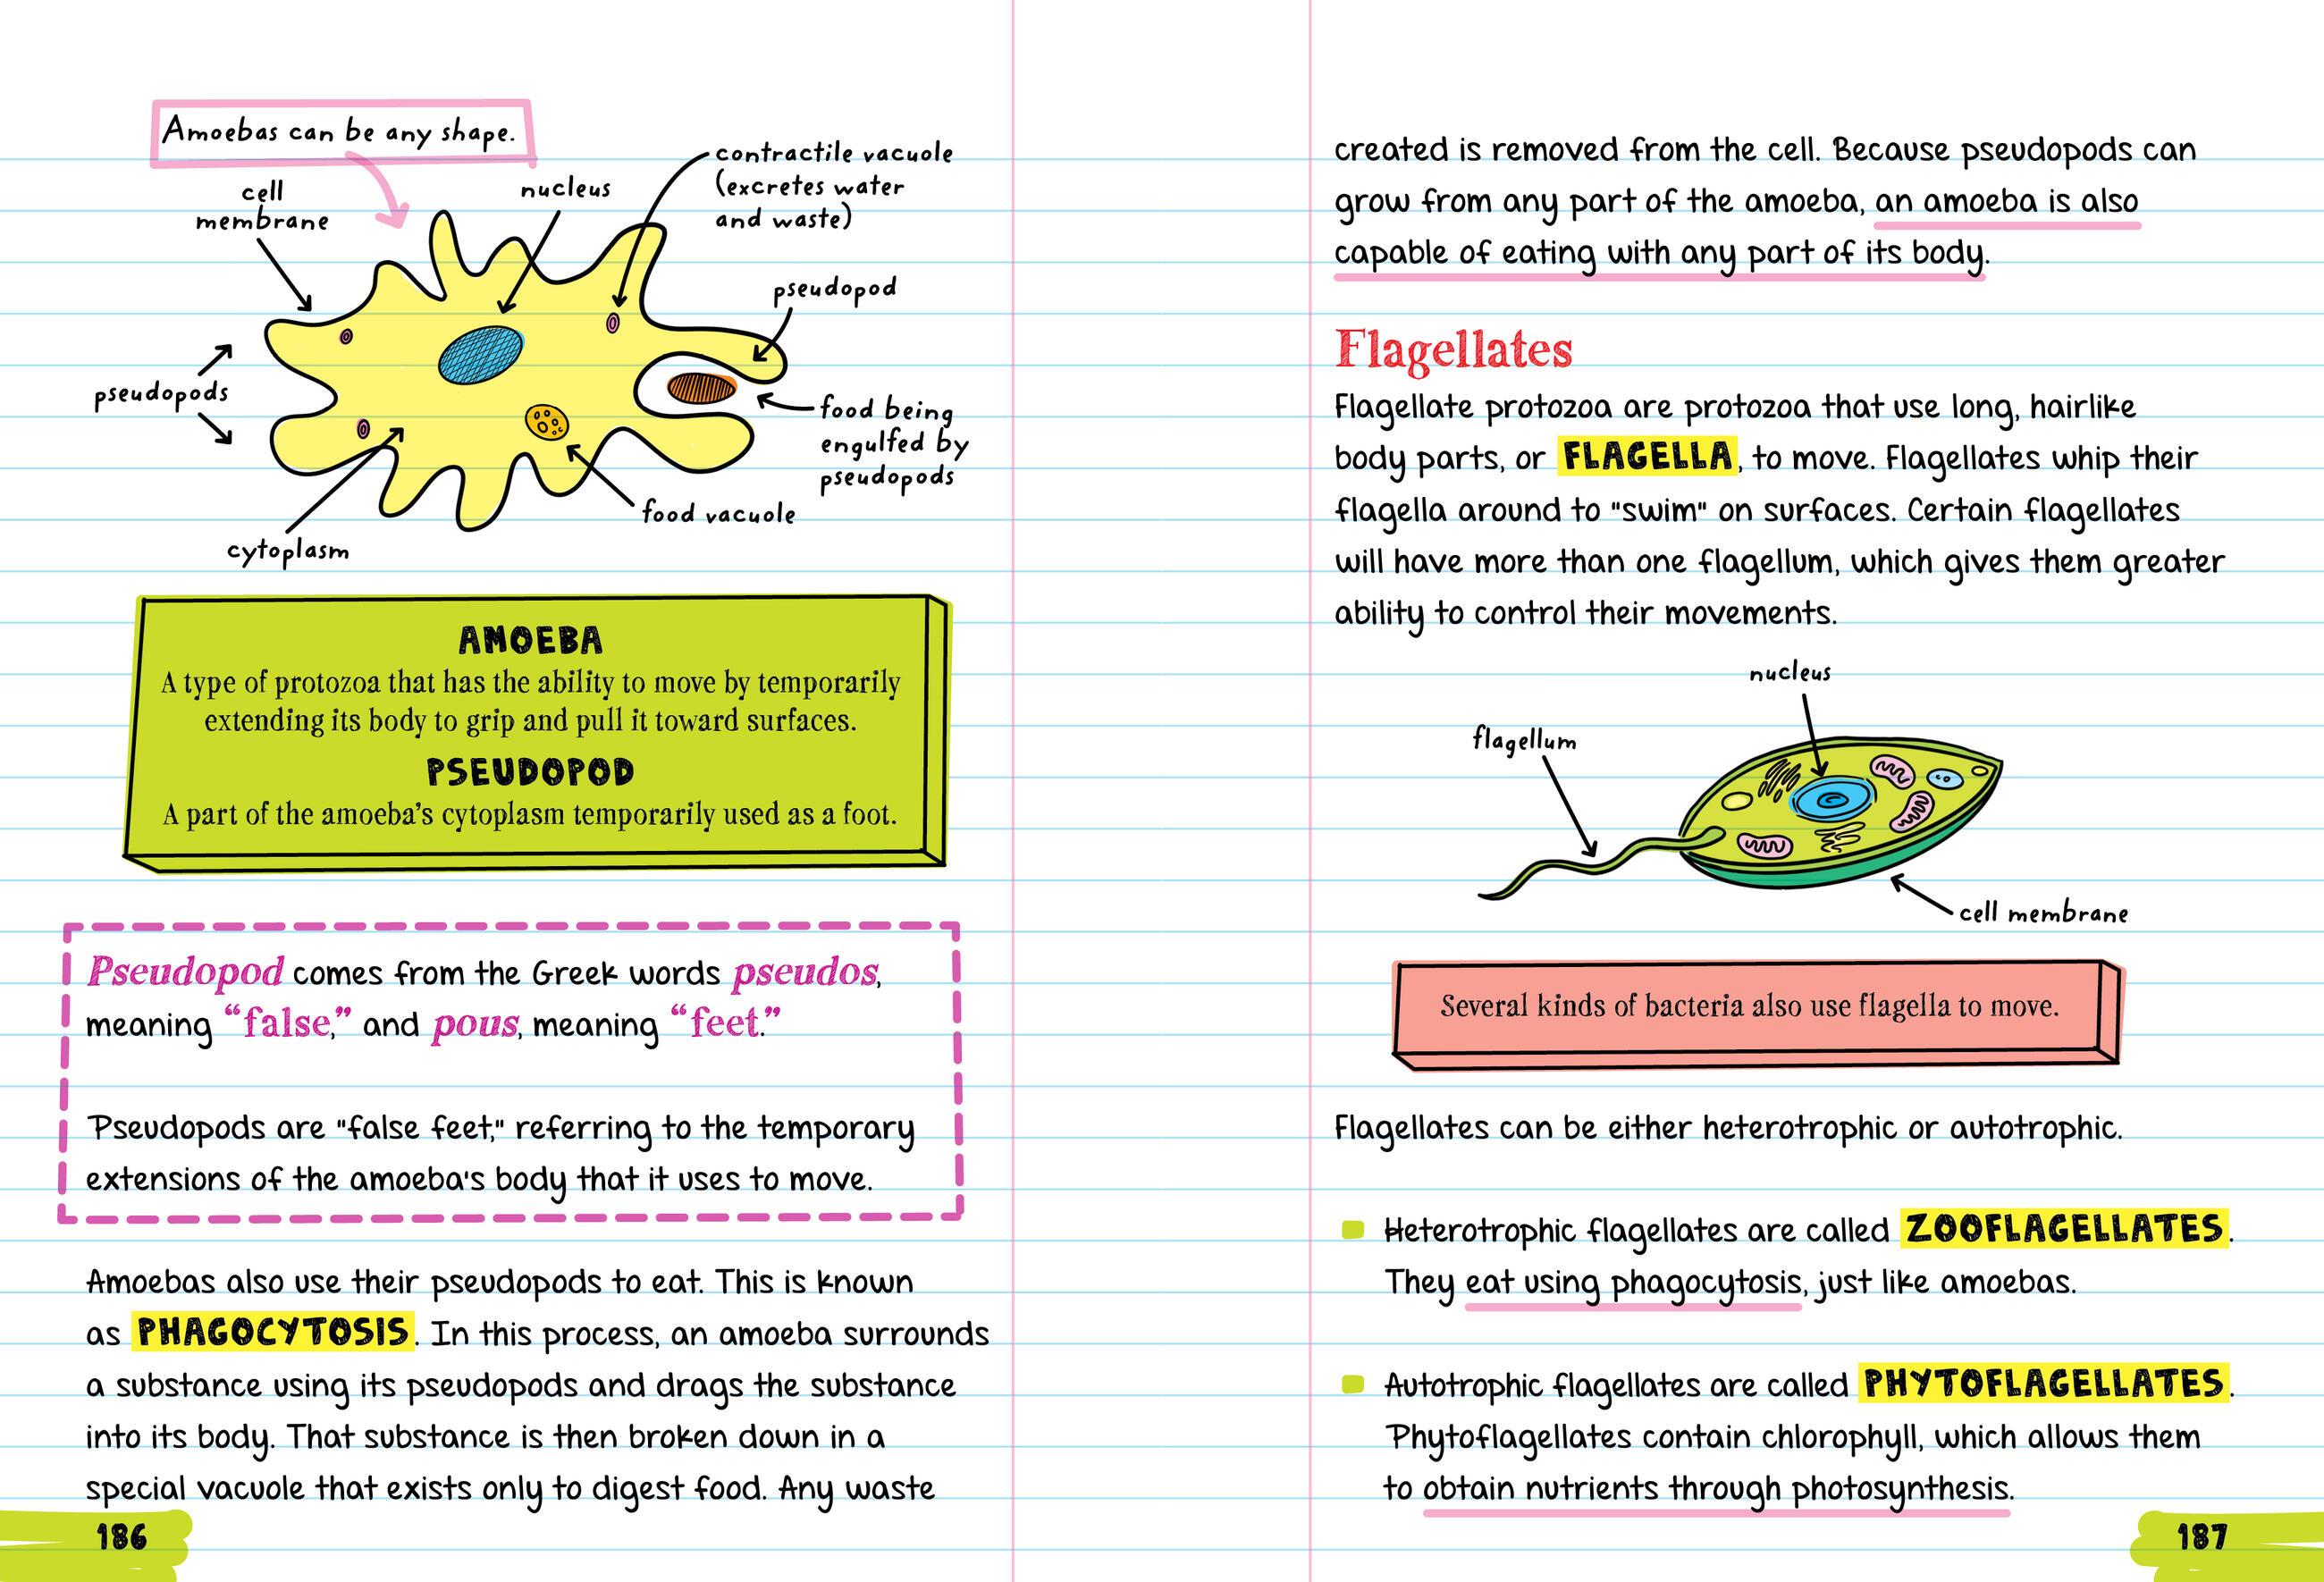 Amoebas can be any shape.
cell
membrane
nucleus
contractile vacuole
(excretes water
and waste)
pseudopod
pseudopods
food being
engulfed by
pseudopods
food vacuole
cytoplasm
AMOEBA
A type of protozoa that has the ability to move by temporarily
extending its body to grip and pull it toward surfaces.
PSEUDOPOD
A part of the amoeba’s cytoplasm temporarily used as a foot.
Pseudopod comes from the Greek words pseudos,
meaning “false,” and pous, meaning “feet.”
Pseudopods are "false feet," referring to the temporary
extensions of the amoeba's body that it uses to move.
Amoebas also use their pseudopods to eat. This is known
as PHAGOCYTOSIS. In this process, an amoeba surrounds
a substance using its pseudopods and drags the substance
into its body. That substance is then broken down in a
special vacuole that exists only to digest food. Any waste
186
created is removed from the cell. Because pseudopods can
grow from any part of the amoeba, an amoeba is also
capable of eating with any part of its body.
Flagellates
Flagellate protozoa are protozoa that use long, hairlike
body parts, or FLAGELLA, to move. Flagellates whip their
flagella around to "swim" on surfaces. Certain flagellates
will have more than one flagellum, which gives them greater
ability to control their movements.
nucleus
flagellum
cell membrane
Several kinds of bacteria also use flagella to move.
Flagellates can be either heterotrophic or autotrophic.
Heterotrophic flagellates are called ZOOFLAGELLATES.
They eat using phagocytosis, just like amoebas.
Autotrophic flagellates are called PHYTOFLAGELLATES.
Phytoflagellates contain chlorophyll, which allows them
to obtain nutrients through photosynthesis.
187